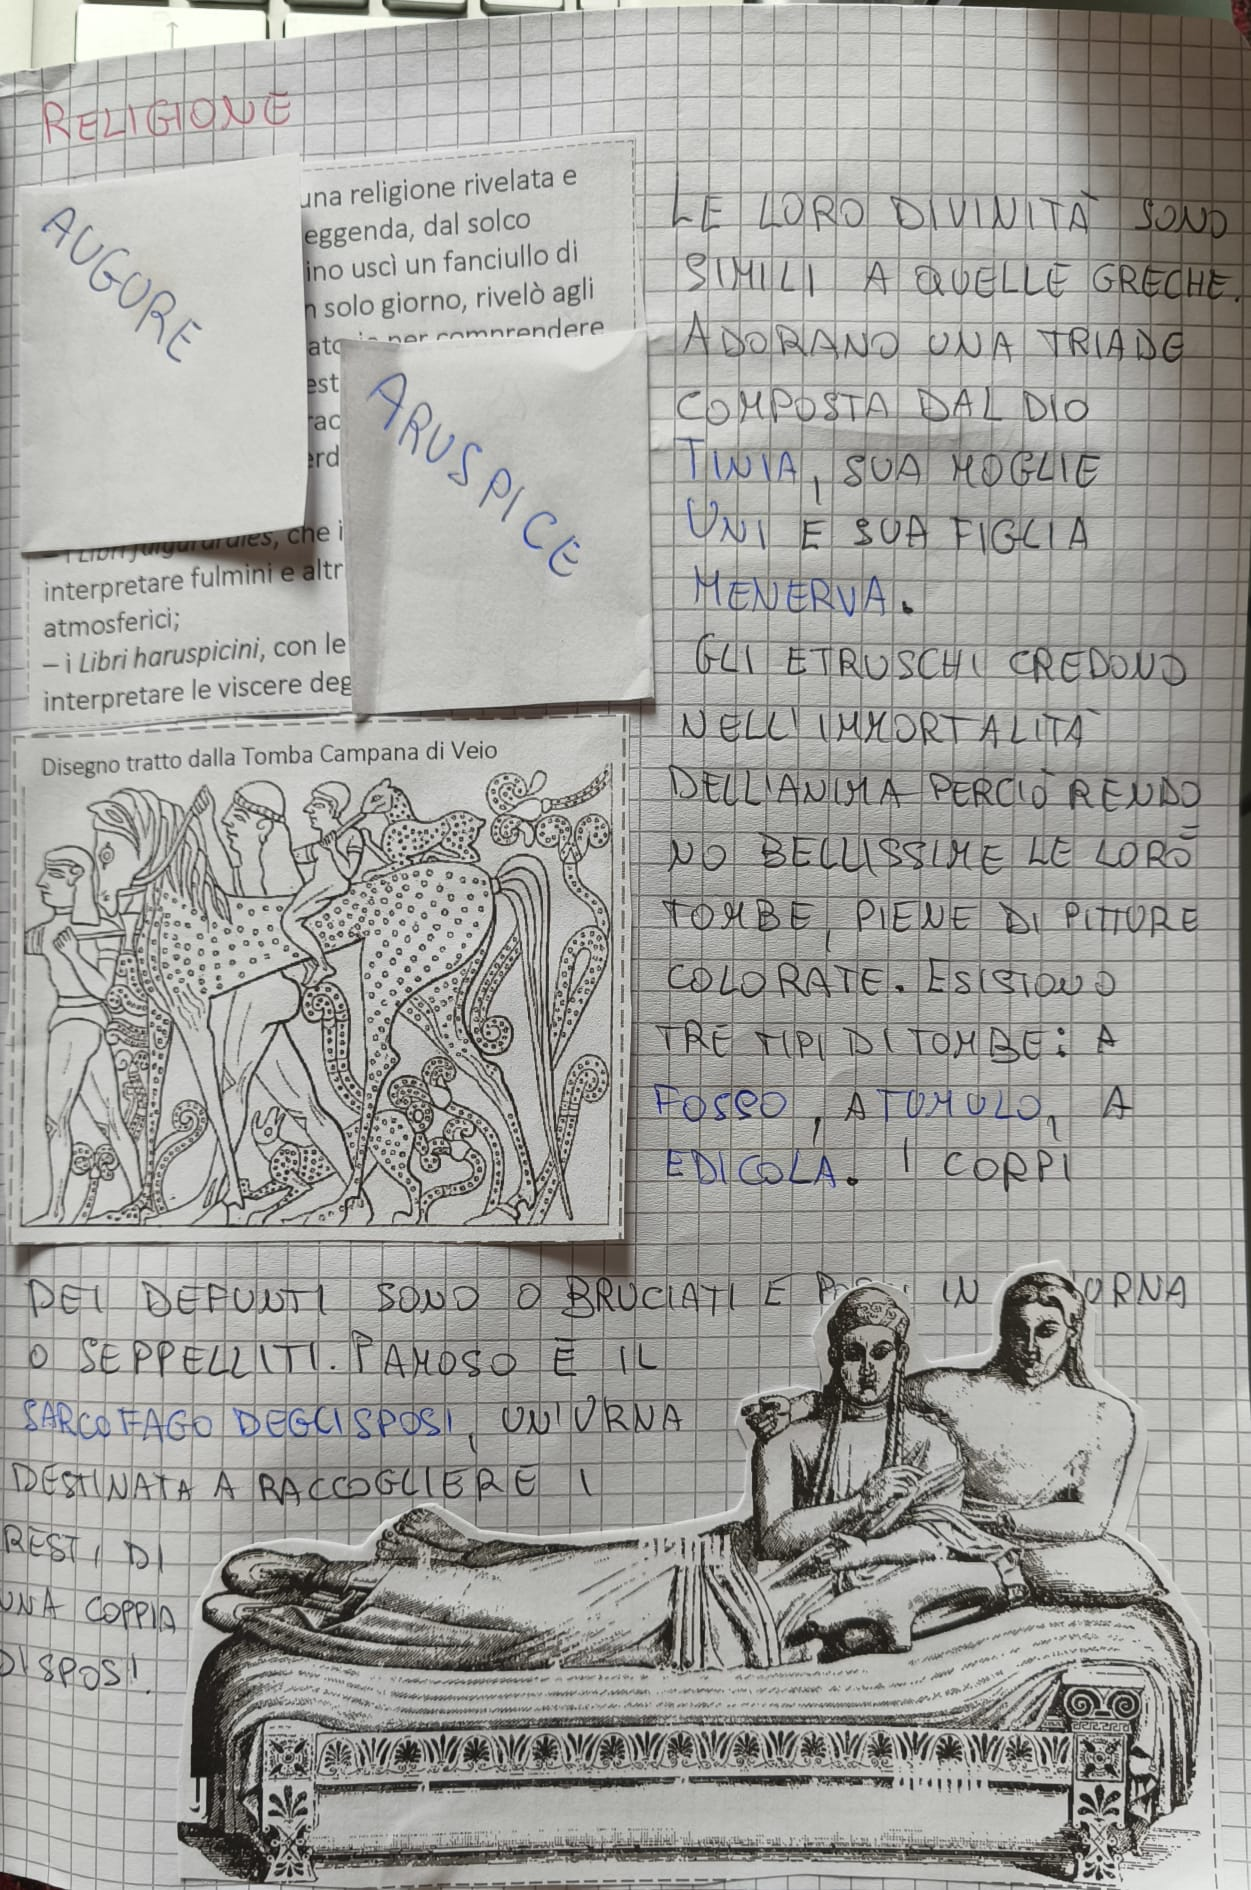 RELIGIONE
AUGURE
una religione rivelata e
eggenda, dal solco
ino uscì un fanciullo di
n solo giorno, rivelò agli
per comprendere
est
rac
erd
ARUSPICE
– i Libri fulgurales, che i
interpretare fulmini e altr
atmosferici;
– i Libri haruspicini, con le
interpretare le viscere deg
Disegno tratto dalla Tomba Campana di Veio
LE LORO DIVINITÀ SONO
SIMILI A QUELLE GRECHE.
ADORANO UNA TRIADE
COMPOSTA DAL DIO
TINIA, SUA MOGLIE
UNI E SUA FIGLIA
MENERVA.
GLI ETRUSCHI CREDONO
NELL'IMMORTALITÀ
DELL'ANIMA PERCIÒ RENDO
NO BELLISSIME LE LORO
TOMBE, PIENE DI PITTURE
COLORATE. ESISTONO
TRE TIPI DI TOMBE: A
FOSSO, A TUMULO, A
EDICOLA. I CORPI
DEI DEFUNTI SONO O BRUCIATI E IN URNA
O SEPPELLITI. FAMOSO È IL
SARCOFAGO DEGLI SPOSI, UN'URNA
DESTINATA A RACCOGLIERE I
RESTI DI
UNA COPPIA
DI SPOSI.